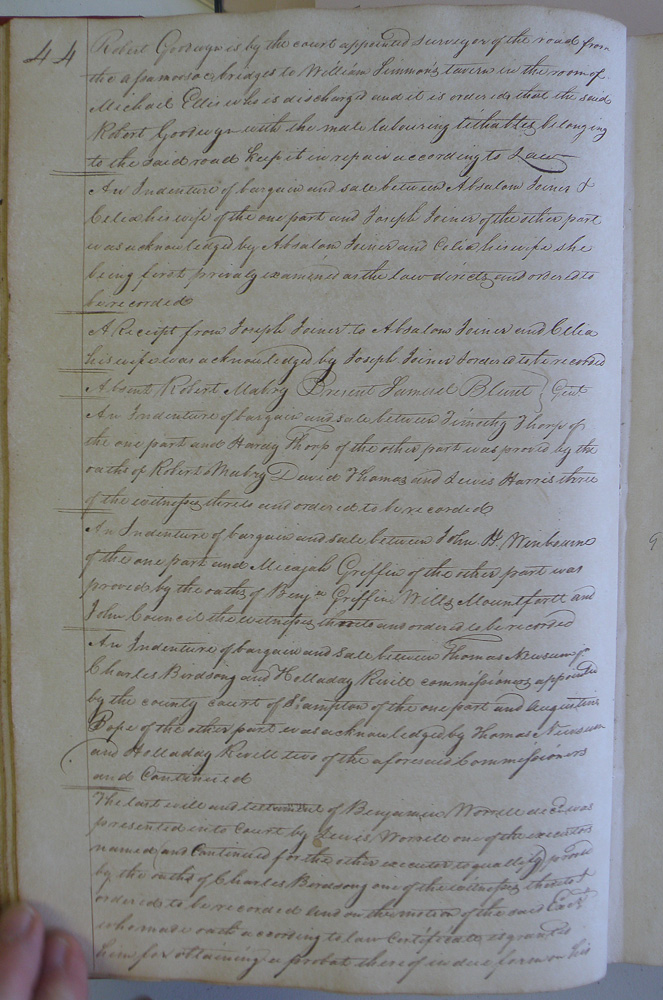 44
Robert Goodwyn is by the court appointed surveyor of the road from
the bridges to William Simmons tavern in the room of
Michael Ellis who is discharged and it is orderd that the said
Robert Goodwyn with the male labouring tithables belonging
to the said road keep it in repair according to Law
An Indenture of bargain and sale between Absalom Joiner &
Celia his wife of the one part and Joseph Joiner of the other part
was acknowledged by Absalom Joiner and Celia his wife she
being first privaly examined as the law directs and ordered to
be recorded
A Receipt from Joseph Joiner to Absalom Joiner and Celia
his wife was acknowledged by Joseph Joiner & ordered to be recorded
Absent Robert Mabry Present Samuel Blunt Gent
An Indenture of bargain and sale between Timothy Thorp of
the one part and Hardy Thorp of the other part was proved by the
oaths of Robert Mabry David Thomas and Lewis Harris three
of the witnesses thereto and ordered to be recorded
An Indenture of bargain and sale between John H. Winbourne
of the one part and Micajah Griffin of the other part was
proved by the oaths of Benjn Griffin Wills Mountfortt and
John Council the witnesses thereto and ordered to be recorded
An Indenture of bargain and sale between Thomas Newsum Jr
Charles Birdsong and Holladay Revill commissioners appointed
by the county court of S.ampton of the one part and Augustine
Pope of the other part was acknowledged by Thomas Newsum
and Holladay Revill two of the aforesaid Commissioners
and Continued
The last will and testament of Benjamin Worrell decd was
presented into Court by Lewis Worrell one of the executors
named (and Continued for the other executor to qualify) proved
by the oaths of Charles Birdsong one of the witnesses thereto &
ordered to be recorded and on the motion of the said Exor
who made oath according to law Certificate is granted
him for obtaining a probat thereof in due form on his